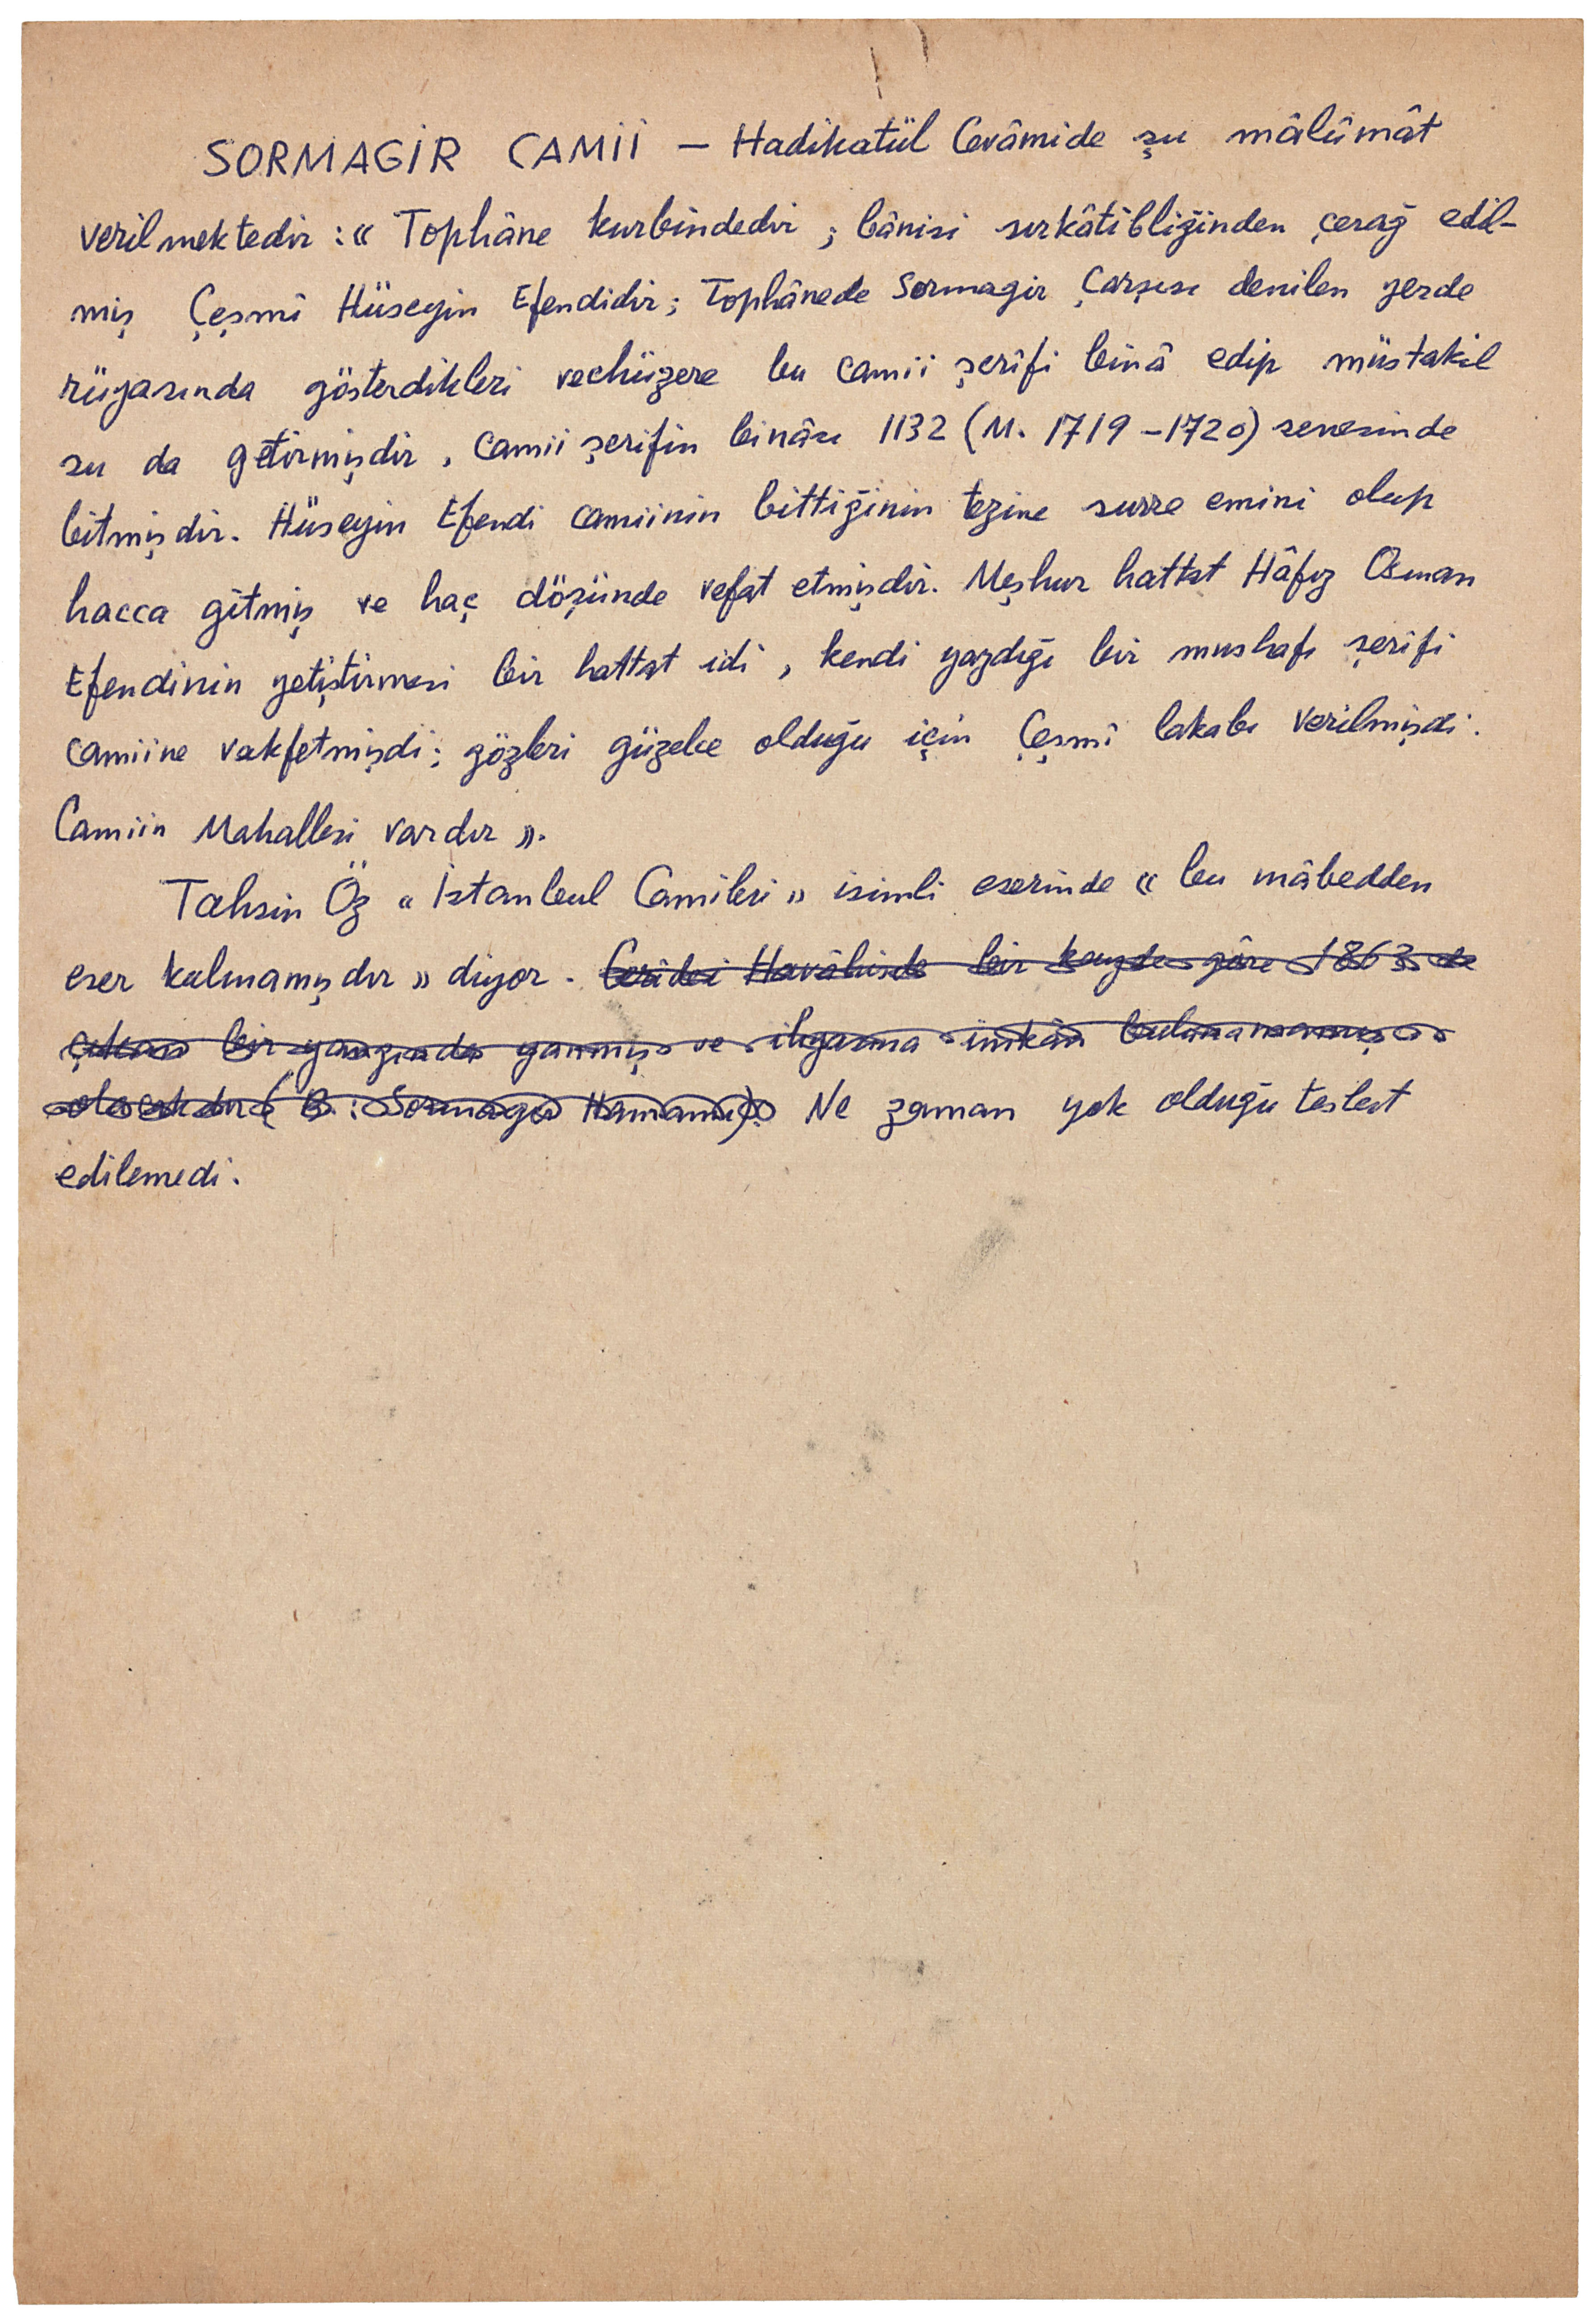 SORMAGİR CAMİİ — Hadikatül Cevâmide şu mâlûmât
verilmektedir : « Tophâne kurbindedir ; bânisi sırkâtibliğinden çerağ edil-
miş Çeşmî Hüseyin Efendidir ; Tophânede Sormagir Çarşısı denilen yerde
rüyasında gösterdikleri vechüzere bu camii şerîfi binâ edip müstakil
su da getirmişdir , Camii şerifin binâsı 1132 (M. 1719 – 1720) senesinde
bitmişdir. Hüseyin Efendi camiinin bittiğinin tezine surre emini olup
hacca gitmiş ve haç döşünde vefat etmişdir. Meşhur hattat Hâfız Osman
Efendinin yetiştirmesi bir hattat idi , kendi yazdığı bir mushafı şerifi
camiine vakfetmişdi ; gözleri güzelce olduğu için Çeşmî lakabı verilmişdi.
Camiin Mahallesi vardır ».
Tahsin Öz « İstanbul Camileri » isimli eserinde « bu mâbedden
eser kalmamışdır » diyor . Cerîdei Havâdisde bir kayda göre 1863 de
çıkan bir yangında yanmış ve ihyasına imkân bulunamamış
olacakdır ( B. : Sormagir Hamamı ). Ne zaman yok olduğu tesbit
edilemedi .